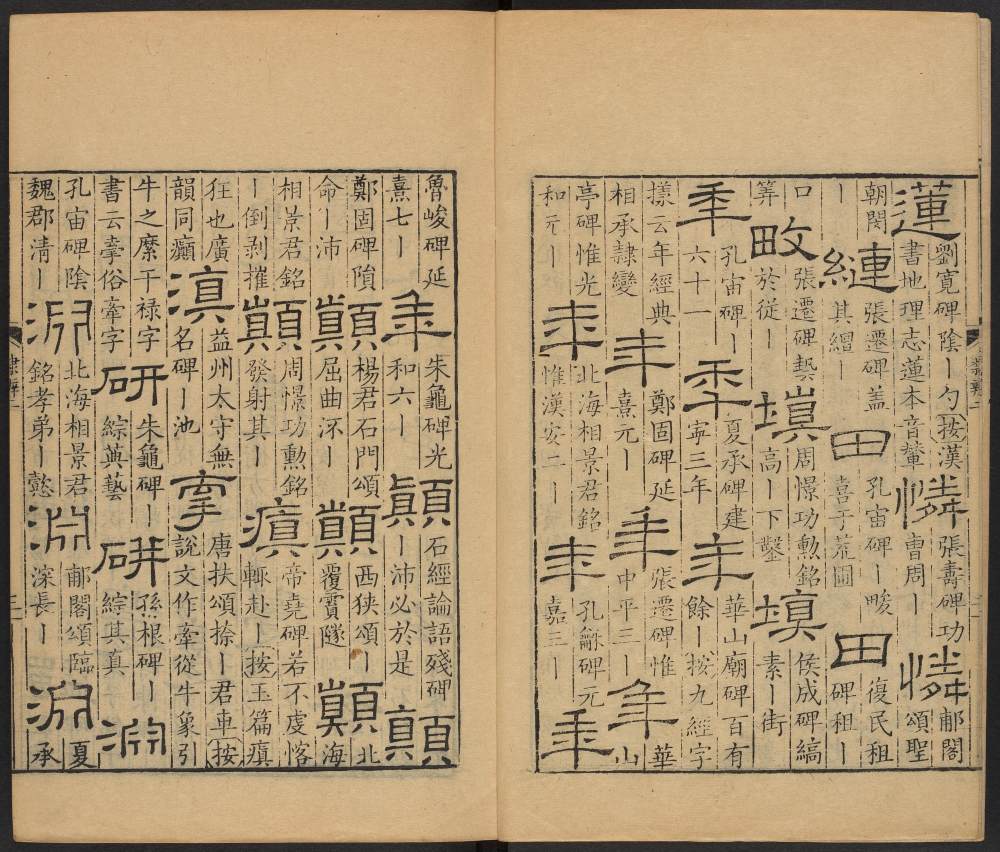 蓮劉寬碑陰丨勺按漢書地理志蓮本音輦憐張壽碑功曹周丨憐郙閣頌聖
朝閔丨縺張遷碑蓋其繒丨田孔宙碑丨畯喜于荒圃田復民租碑租丨
口筭畋張遷碑䂮於從丨塡周憬功勲銘高丨下鑿塡侯成碑縞素丨街
秊孔宙碑丨六十一秊夏承碑建寧三年年華山廟碑百有餘丨按九經字
㨾云年經典相承隷變年鄭固碑延熹元丨年張遷碑惟中平三丨年華山
亭碑惟光和元丨年北海相景君銘惟漢安二丨年孔龢碑元嘉三丨年
隸辨二
魯峻碑延熹七丨年朱龜碑光和六丨顚石經論語殘碑丨沛必於是顚
鄭固碑隕命丨沛顚楊君石門頌屈曲泝丨顚西狹頌丨覆霣隧顚北海
相景君銘丨倒剥摧顚周憬功勲銘發射其丨瘨帝堯碑若不虔恪輒赴丨按玉篇瘨
狂也廣韻同癲滇益州太守無名碑池牽唐扶頌捺丨君車按說文作牽從牛象引
牛之縻干祿字書云㸫俗牽字研朱龜碑丨綜典藝硏孫根碑丨綜其真淵
孔宙碑陰魏郡清丨淵北海相景君銘孝弟丨懿淵郙閣頌臨深長丨淵夏承